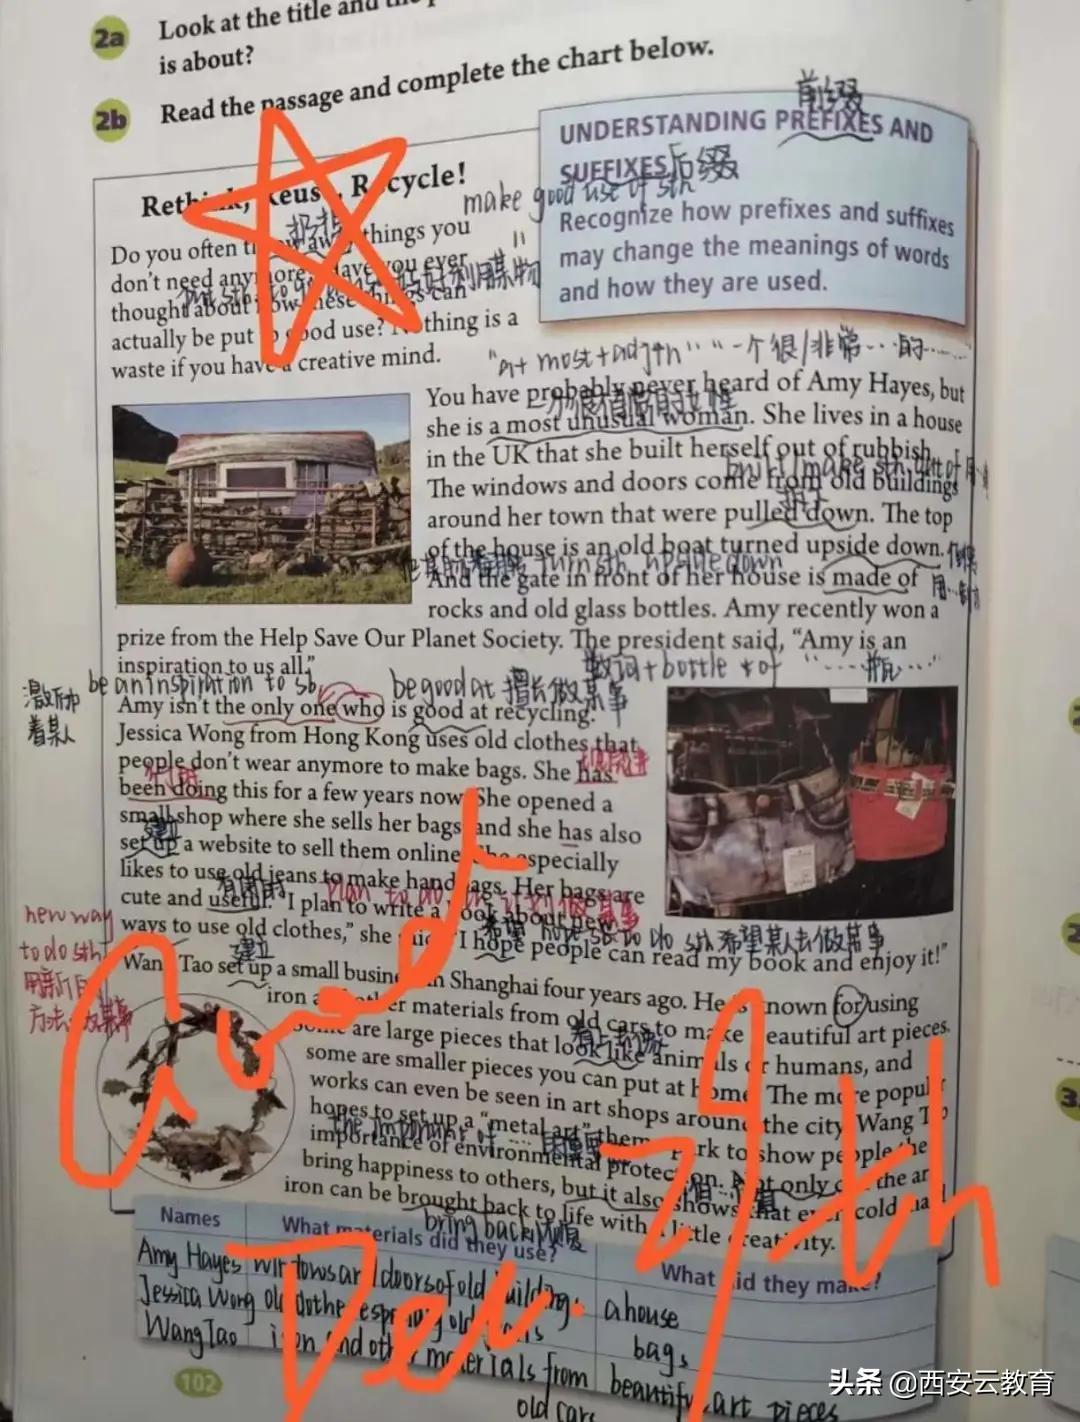 2a
Look at the title and the
is about?
2b
Read the passage and complete the chart below.
前缀
UNDERSTANDING PREFIXES AND
SUFFIXES 后缀
Recognize how prefixes and suffixes
may change the meanings of words
and how they are used.
Rethink, Reuse, Recycle!
make good use of sth
扔掉
Do you often throw away things you
don't need anymore? Have you ever
put sth to good use 好好利用某物
thought about how these things can
actually be put to good use? Nothing is a
waste if you have a creative mind.
"a+ most+adj+n" "一个很/非常…的……
You have probably never heard of Amy Hayes, but
she is a most unusual woman. She lives in a house
in the UK that she built herself out of rubbish.
build/make sth out of 用
The windows and doors come from old buildings
around her town that were pulled down. The top
of the house is an old boat turned upside down.
turn sth upside down
And the gate in front of her house is made of
rocks and old glass bottles. Amy recently won a
prize from the Help Save Our Planet Society. The president said, "Amy is an
inspiration to us all."
数词+bottle of "……瓶…"
激励
着某人
be an inspiration to sb
be good at 擅长做某事
Amy isn't the only one who is good at recycling.
Jessica Wong from Hong Kong uses old clothes that
people don't wear anymore to make bags. She has
been doing this for a few years now. She opened a
small shop where she sells her bags, and she has also
建立
set up a website to sell them online. She especially
likes to use old jeans to make handbags. Her bags are
有用的
plan to do sth 计划做某事
cute and useful. "I plan to write a book about new
ways to use old clothes," she said. "I hope people can read my book and enjoy it!"
希望 hope sb to do sth 希望某人去做某事
new way
to do sth
用新的
方法做某事
建立
Wang Tao set up a small business in Shanghai four years ago. He is known for using
iron and other materials from old cars to make beautiful art pieces.
Some are large pieces that look like animals or humans, and
看上去像
some are smaller pieces you can put at home. The more popular
works can even be seen in art shops around the city. Wang Tao
hopes to set up a "metal art" theme park to show people the
importance of environmental protection. Not only can the art
bring happiness to others, but it also shows that even cold hard
iron can be brought back to life with a little creativity.
bring back 恢复
Names
What materials did they use?
What did they make?
Amy Hayes windows and doors of old buildings a house
Jessica Wong old clothes especially old jeans bags
Wang Tao iron and other materials from old cars beautiful art pieces
Good
Dec. 9th
102
头条 @西安云教育